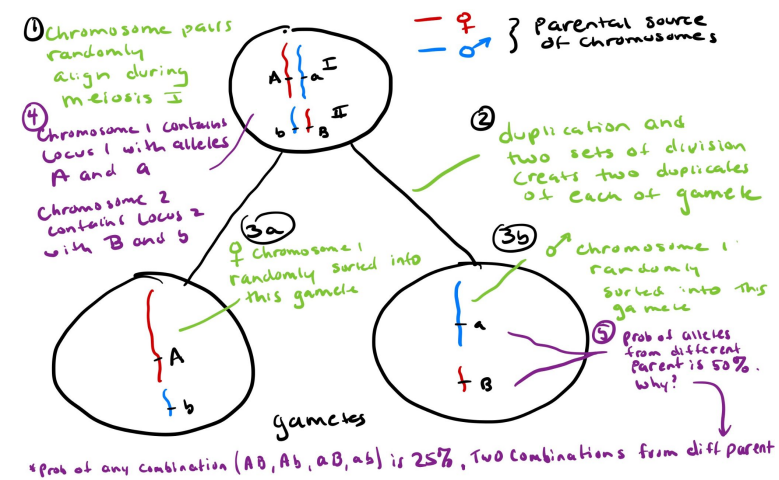 ① Chromosome pairs
randomly
align during
meiosis I
④
Chromosome 1 contains
Locus 1 with alleles
A and a
Chromosome 2
contains Locus 2
with B and b
A a I
b B II
♀ } Parental source
♂ of chromosomes
②
duplication and
two sets of division
creats two duplicates
of each of gamete
3a
♀ chromosome 1
randomly sorted into
this gamete
3b
♂ chromosome 1
randomly
sorted into this
gamete
A
b
a
B
⑤ prob of alleles
from different
parent is 50%.
why?
gametes
*Prob of any combination (AB, Ab, aB, ab) is 25%, Two combinations from diff parent